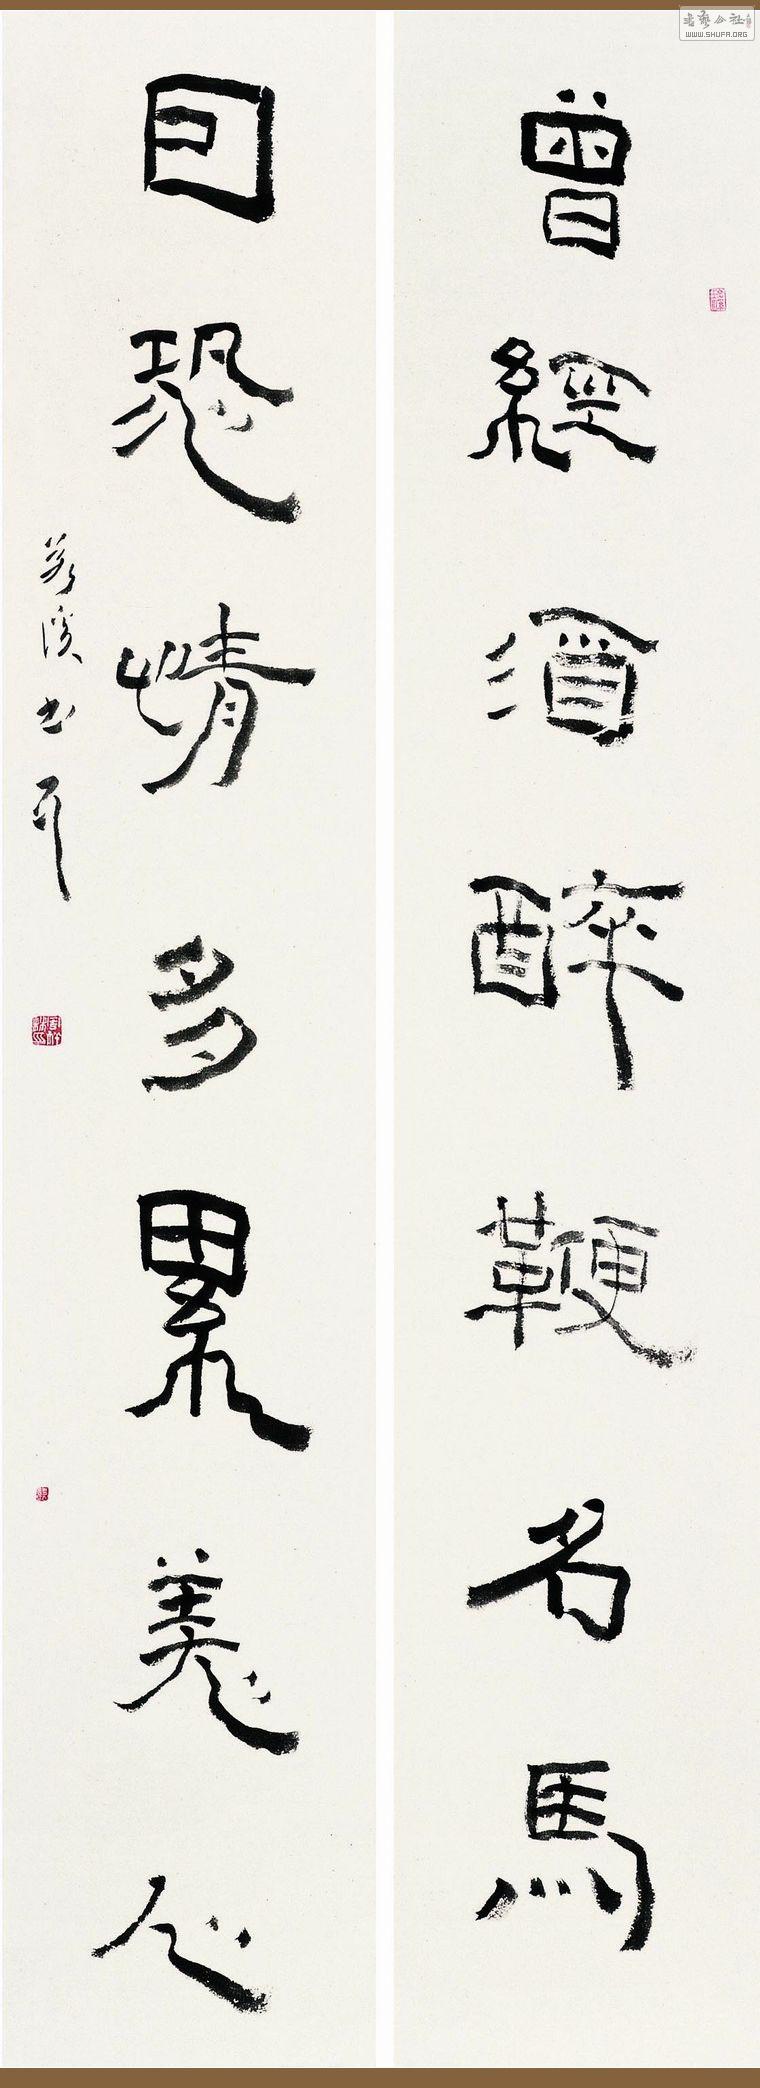 曾經酒醉鞭名馬
囙恐情多累美人
溪书
書藝公社
WWW.SHUFA.ORG